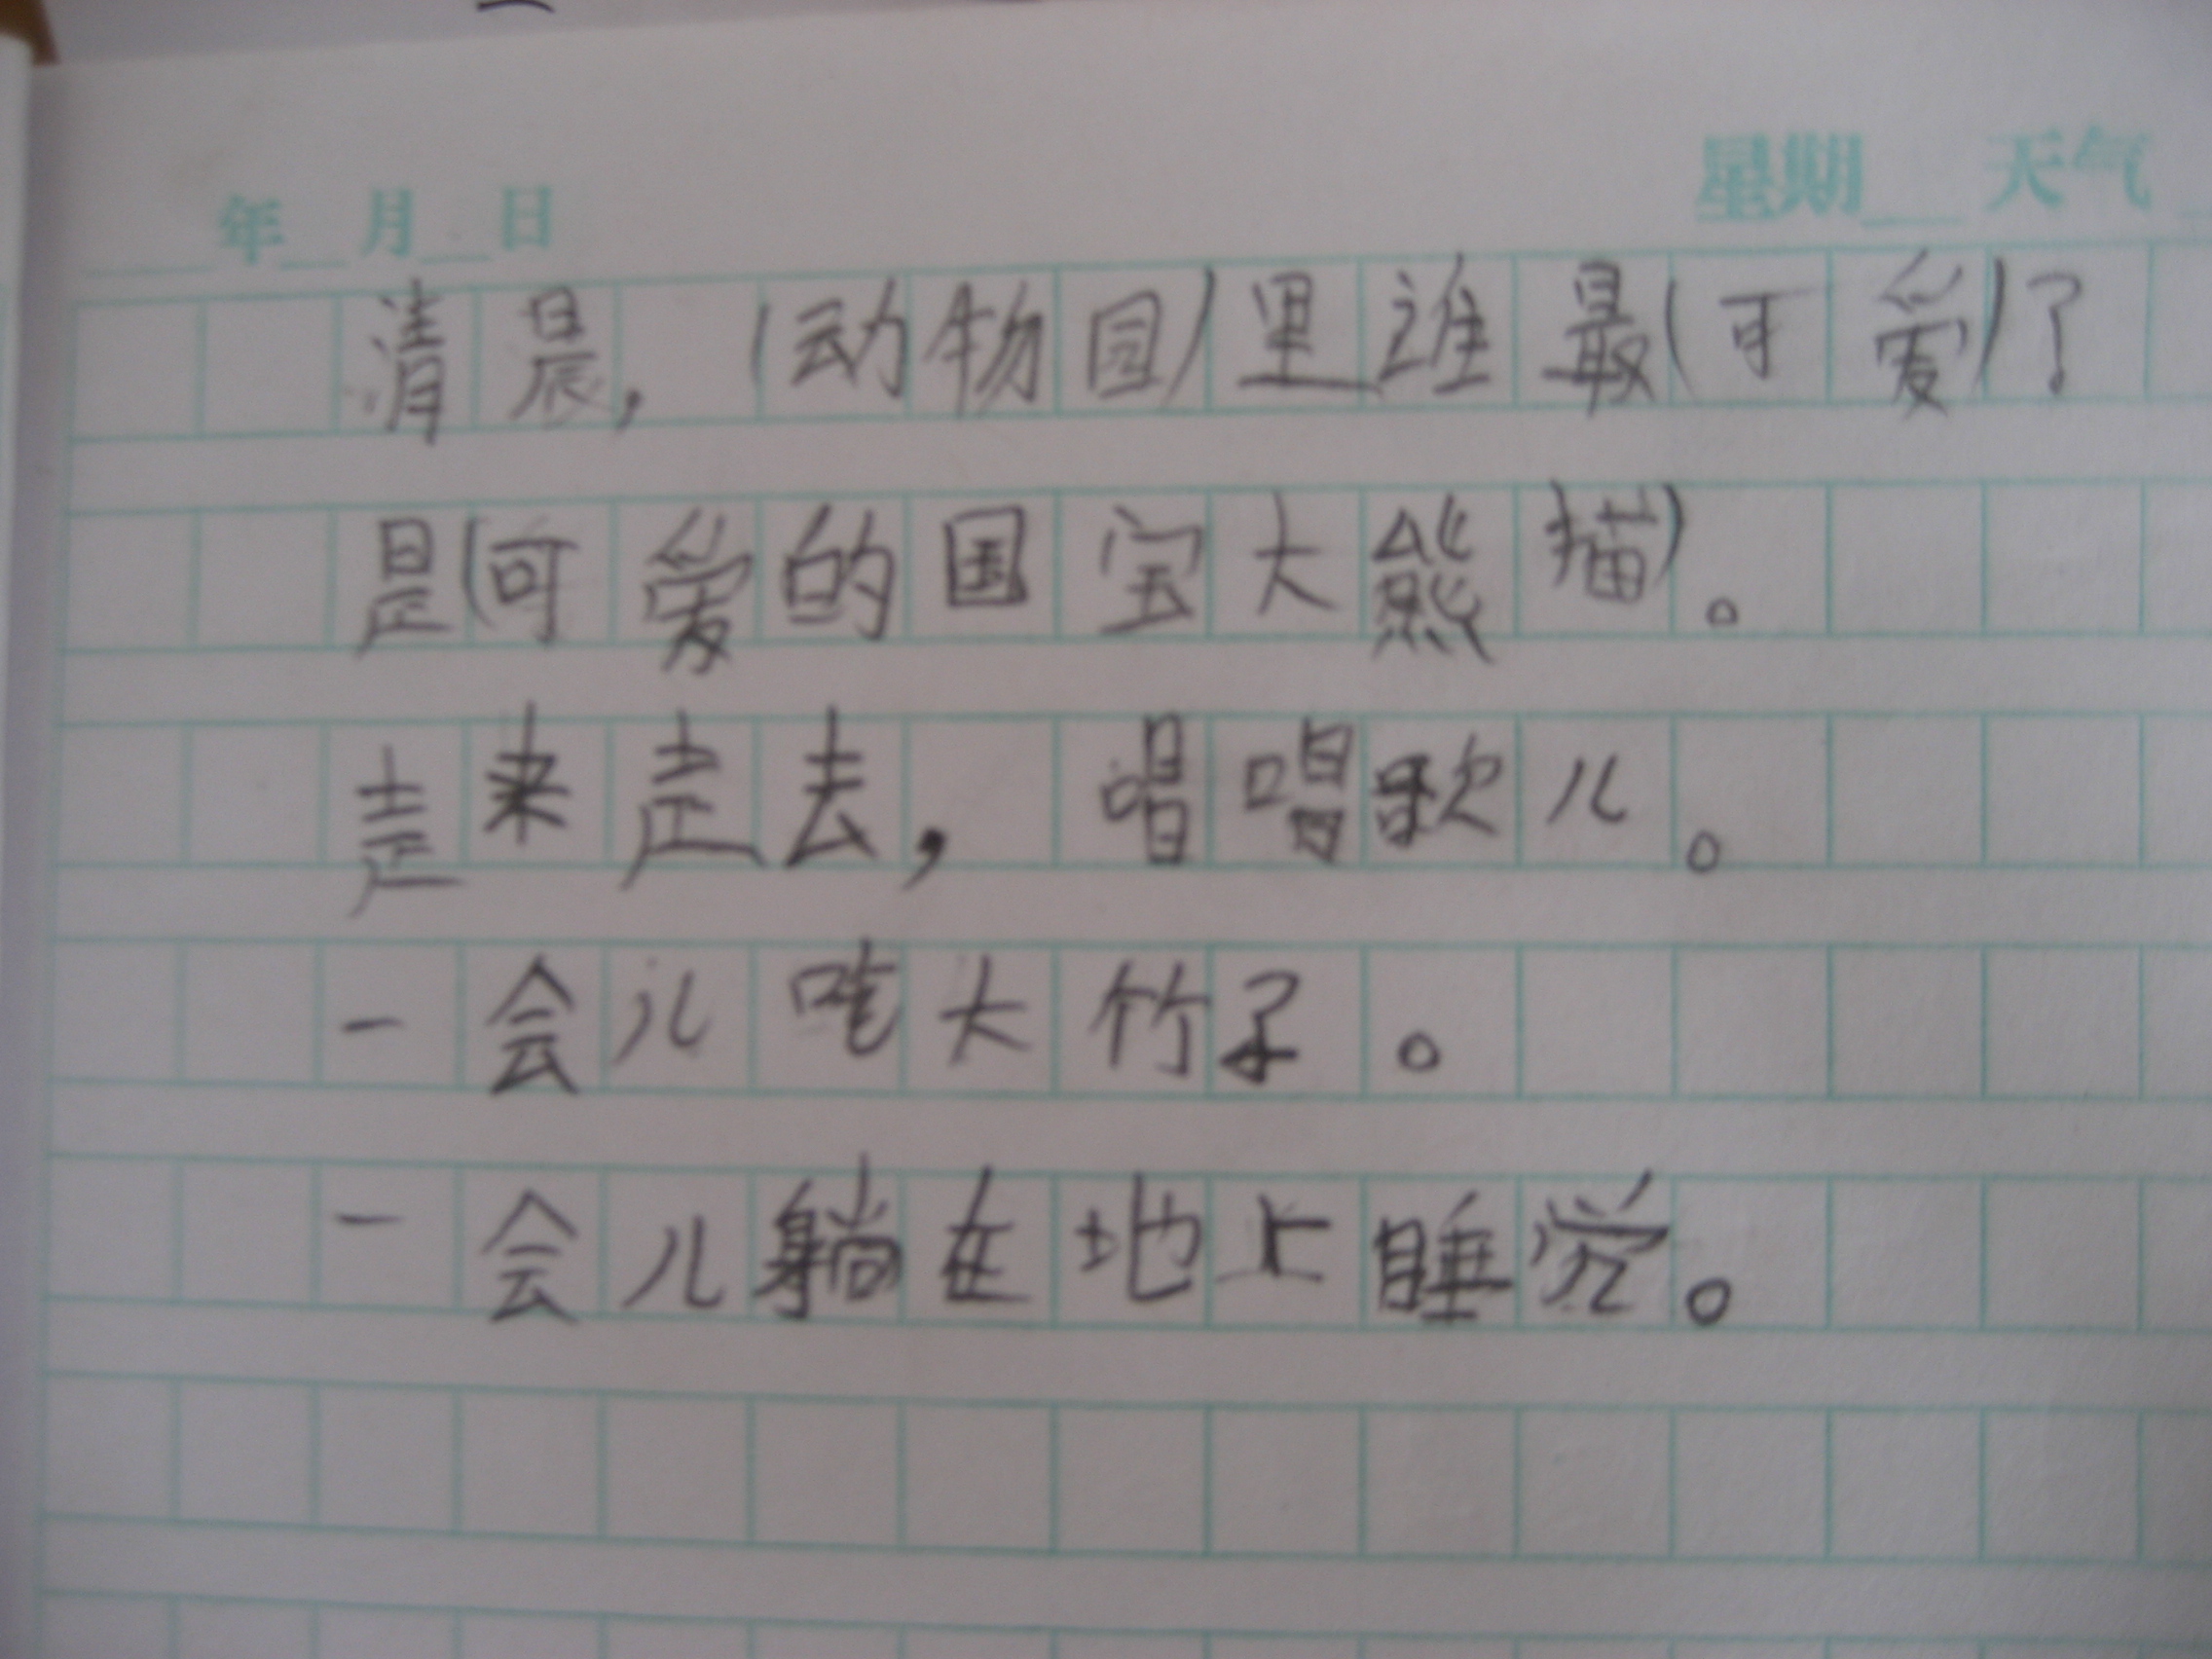 年 月 日 星期 天气
清晨，(动物园)里谁最(可爱)了
是(可爱的国宝大熊猫)。
走来走去，唱唱歌儿。
一会儿吃大竹子。
一会儿躺在地上睡觉。